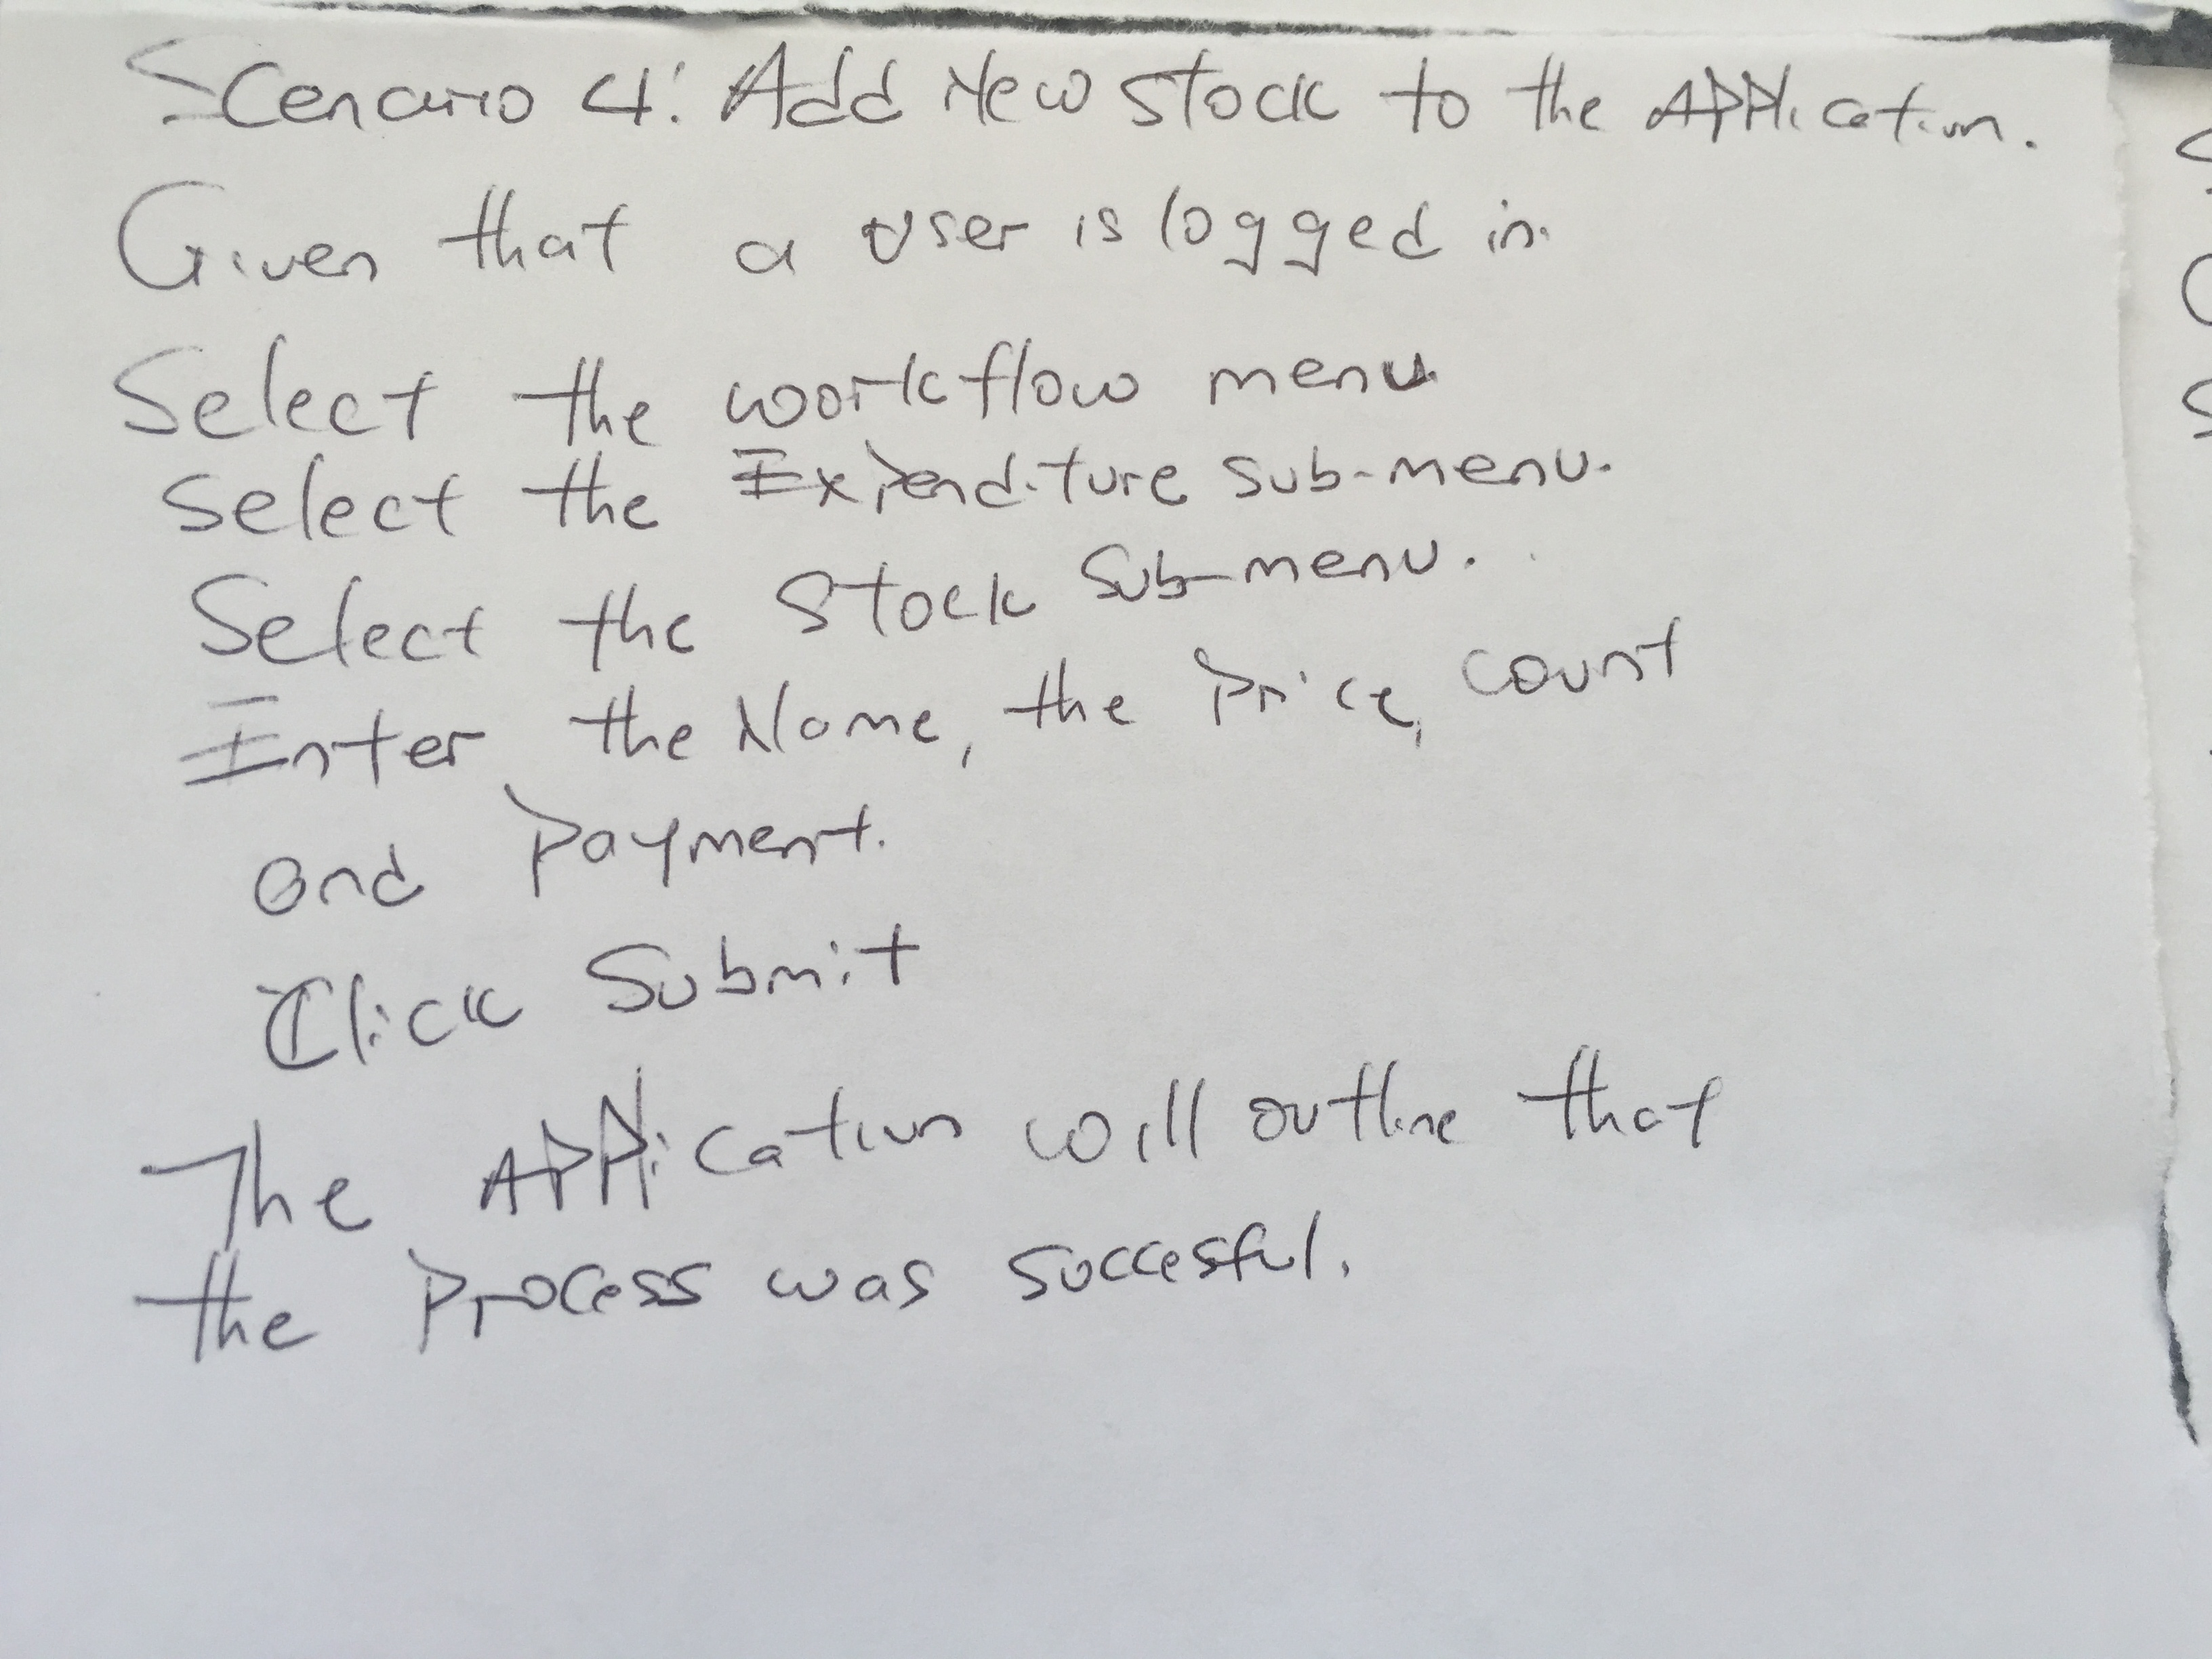 Scenario 4: Add New Stock to the Application.
Given that a user is logged in.
Select the workflow menu
Select the Expenditure sub-menu.
Select the Stock Sub-menu.
Enter the Name, the Price, count
and Payment.
Click Submit
The Application will outline that
the Process was succesful.